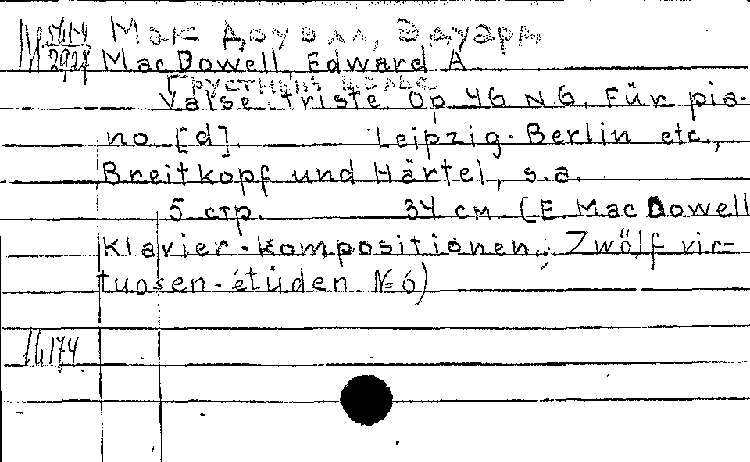 Мак Доуэлл, Эдуард
MacDowell, Edward A.
Грустный вальс.
Valse triste. Op. 46 N 6. Für pia-
no [d]. Leipzig-Berlin etc.,
Breitkopf und Härtel, s.a.
5 стр. 34 см. (E. MacDowell
Klavier-kompositionen.; Zwölf vir-
tuosen-étüden № 6)
16174